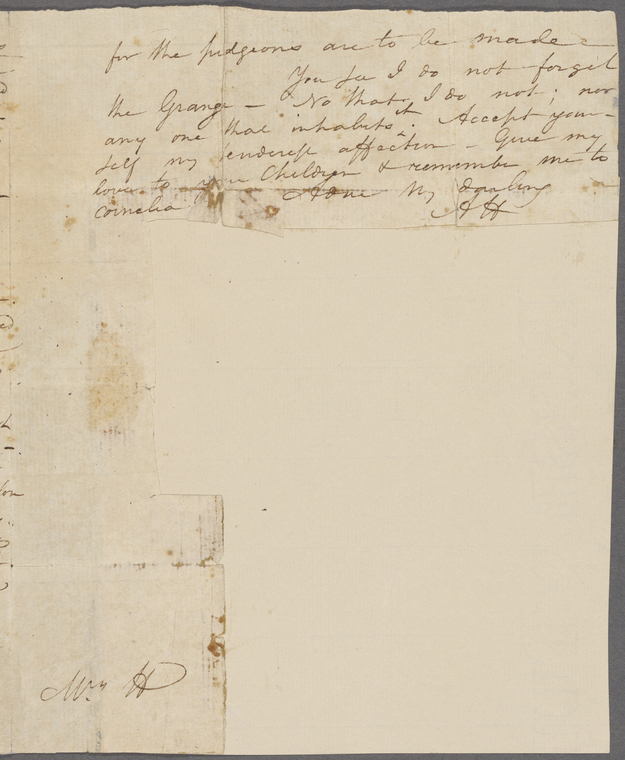 for the pidgeons are to be made
You see I do not forget
the Grange — No that I do not; nor
any one that inhabits it. Accept your-
self my tenderest affection — Give my
love to your Children & remember me to
Cornelia. Adieu My darling
A H
Mrs H